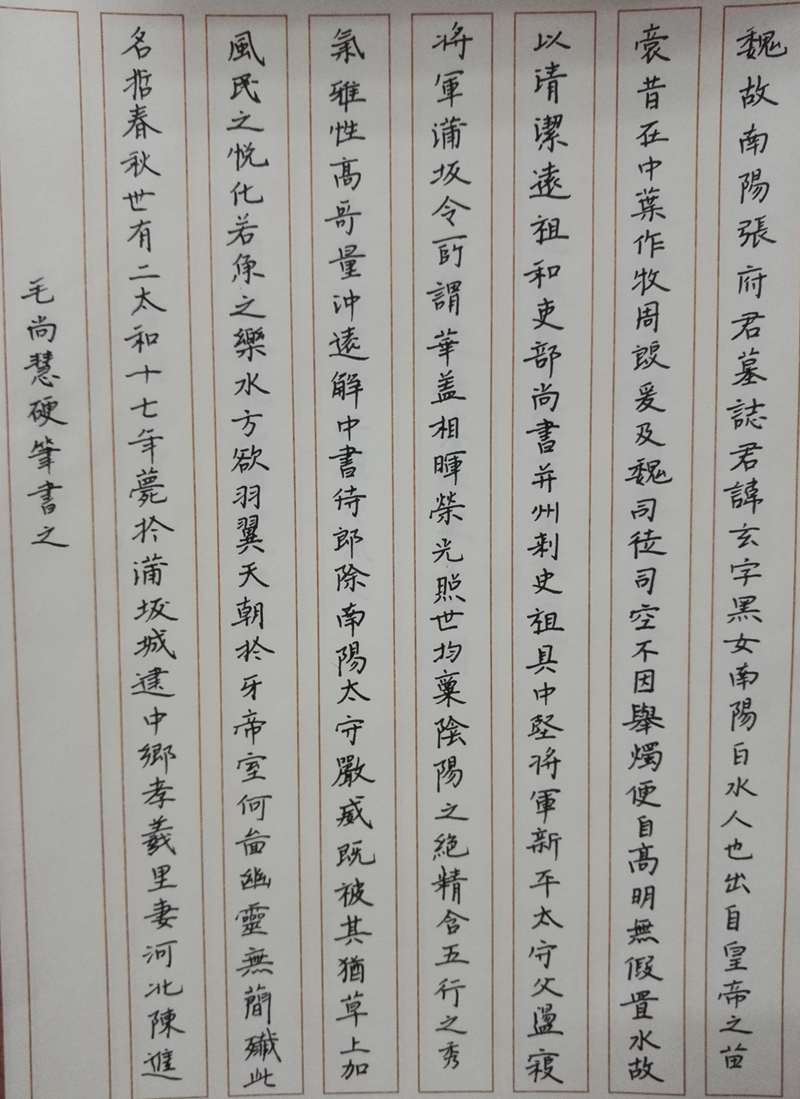 魏故南陽張府君墓誌君諱玄字黑女南陽白水人也出自皇帝之苗
裔昔在中葉作牧周殷爰及魏司徒司空不因舉燭便自高明無假置水故
以清潔遠祖和吏部尚書并州刺史祖具中堅將軍新平太守父盪寇
將軍蒲坂令所謂華盖相暉榮光照世均稟陰陽之絕精含五行之秀
氣雅性高哥量沖遠解中書侍郎除南陽太守嚴威既被其猶草上加
風民之悅化若魚之樂水方欲羽翼天朝扵牙帝室何啚幽靈無簡殲此
名哲春秋世有二太和十七年薨扵蒲坂城建中鄉孝義里妻河北陳進
毛尚慧硬筆書之